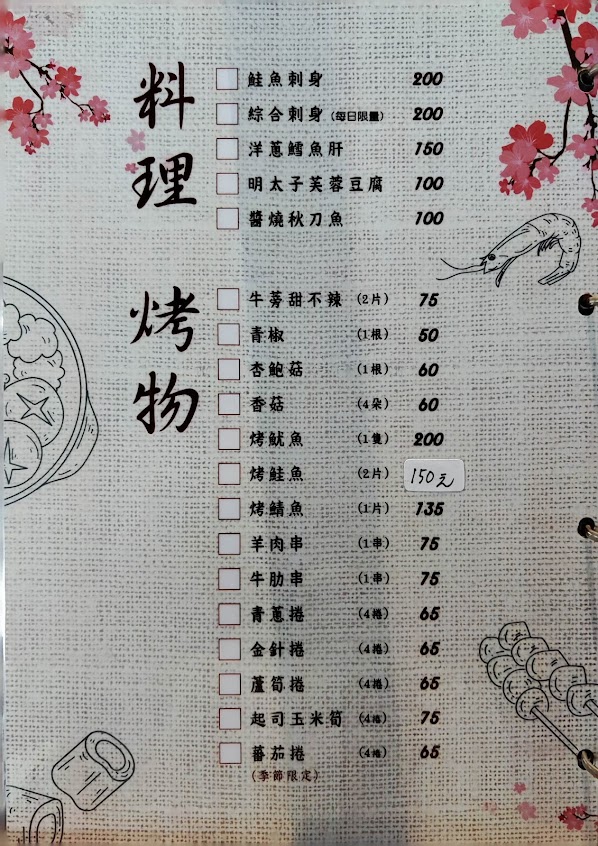 料理
鮭魚刺身 200
綜合刺身 (每日限量) 200
洋蔥鱈魚肝 150
明太子芙蓉豆腐 100
醬燒秋刀魚 100
烤物
牛蒡甜不辣 (2片) 75
青椒 (1根) 50
杏鮑菇 (1根) 60
香菇 (4朵) 60
烤魷魚 (1隻) 200
烤鮭魚 (2片) 150元
烤鯖魚 (1片) 135
羊肉串 (1串) 75
牛肋串 (1串) 75
青蔥捲 (4捲) 65
金針捲 (4捲) 65
蘆筍捲 (4捲) 65
起司玉米筍 (4捲) 75
蕃茄捲 (4捲) 65
(季節限定)